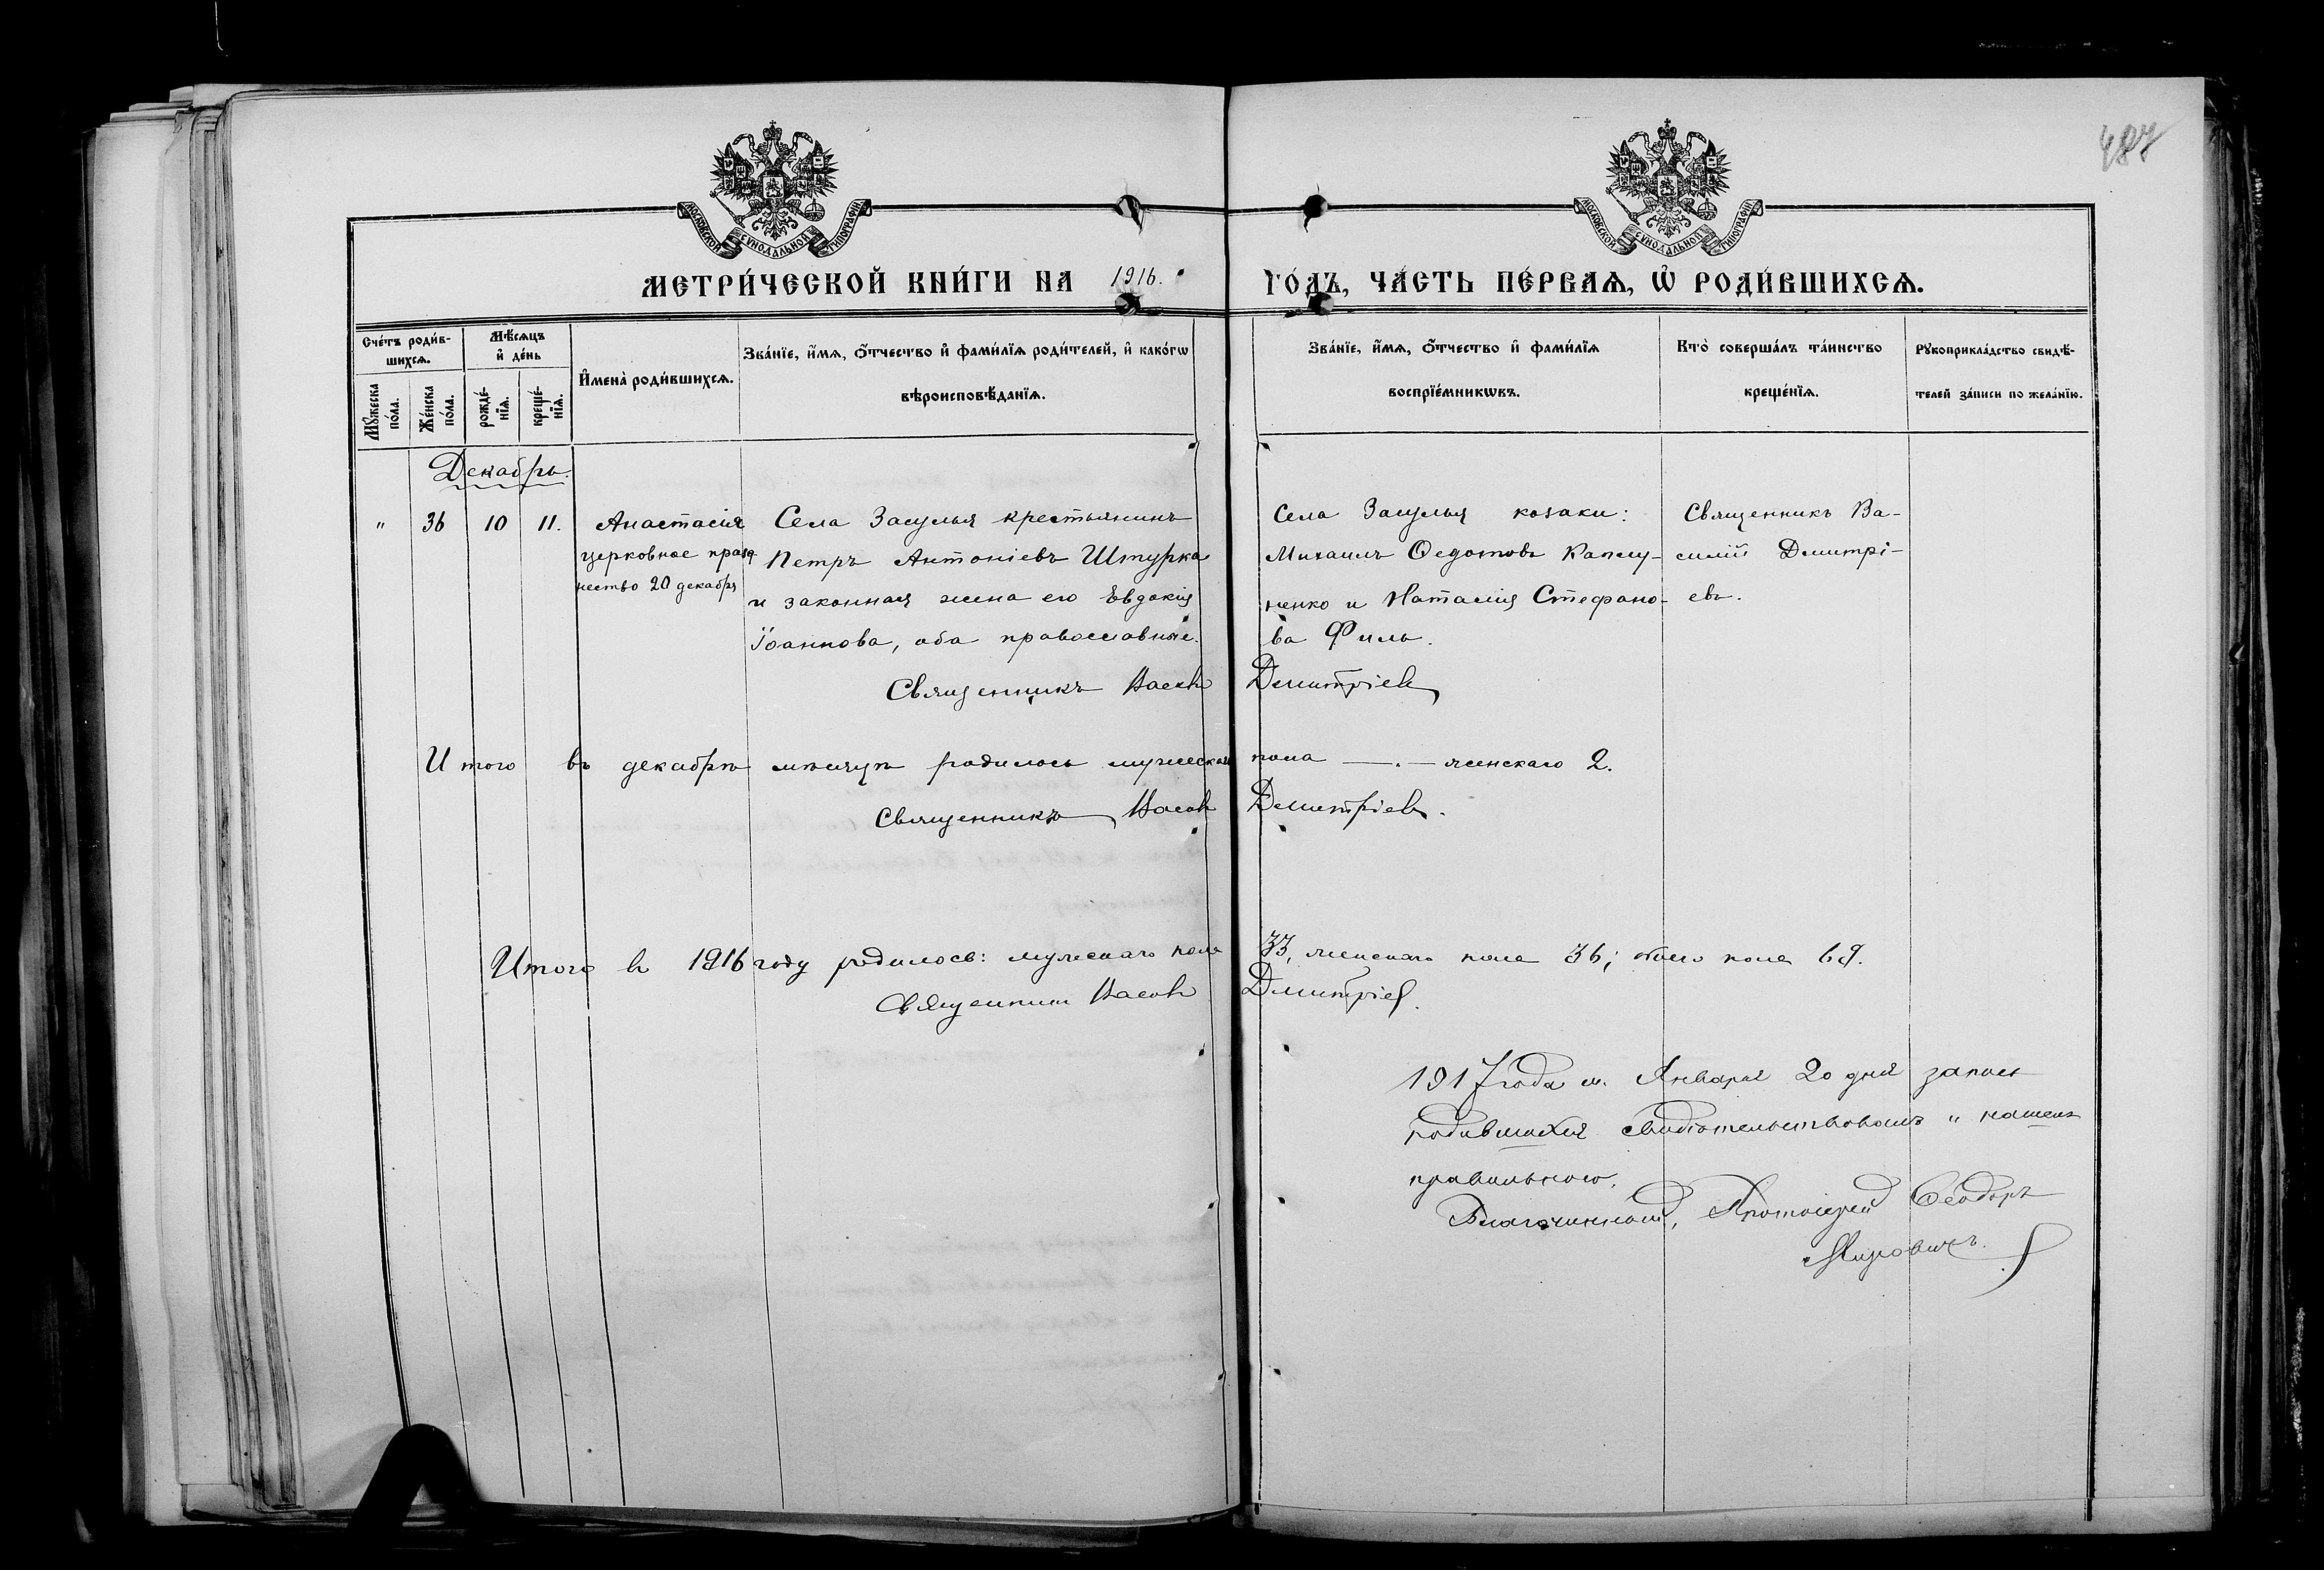 487
МОСКОВСКОЙ СѴНОДАЛЬНОЙ ТИПОГРАФІИ
МОСКОВСКОЙ СѴНОДАЛЬНОЙ ТИПОГРАФІИ
МЕТРИ́ЧЕСКОЙ КНИ́ГИ НА 1916. ГО́ДЪ, ЧА́СТЬ ПЕ́РВАѦ, Ѡ҆ РОДИ́ВШИХСѦ.
Сче́тъ роди́в-
шихсѧ.
Мꙋ́жеска по́ла.
Же́нска по́ла.
Мѣ́сѧцъ
и҆ де́нь
рожде́-
нїѧ.
креще́-
нїѧ.
И҆мена̀ роди́вшихсѧ.
Зва́нїе, и҆́мѧ, ѻ҆́тчество и҆ фами́лїѧ роди́телей, и҆ како́гѡ
вѣроисповѣ́данїѧ.
Зва́нїе, и҆́мѧ, ѻ҆́тчество и҆ фами́лїѧ
воспрїе́мникѡвъ.
Кто̀ соверша́лъ та́инство
креще́нїѧ.
Рꙋкоприкла́дство свидѣ́-
телей за́писи по жела́нїю.
Декабрь.
" 36 10 11.
Анастасія
церковное празд
нество 20 декабря
Села Засулья крестьянинъ
Петръ Антоніевъ Штурка
и законная жена его Евдокія
Іоаннова, оба православные.
Села Засулья козаки:
Михаилъ Ѳедотовъ Капшу-
ненко и Наталія Стефано-
ва Филь.
Священникъ Ва-
силій Димитрі-
евъ.
Священникъ Васил Димитріев
Итого въ декабрѣ мѣсяцѣ родилось мужескаго пола —.— женскаго 2.
Священникъ Васил Димитріев.
Итого въ 1916 году родилось: мужескаго пола 33, женскаго пола 36; обоего пола 69.
Священник Васил Димитріев.
1917 года м. Января 20 дня запись
родившихся свидѣтельствовалъ и нашелъ
правильною.
Благочинный, Протоіерей Ѳеодоръ